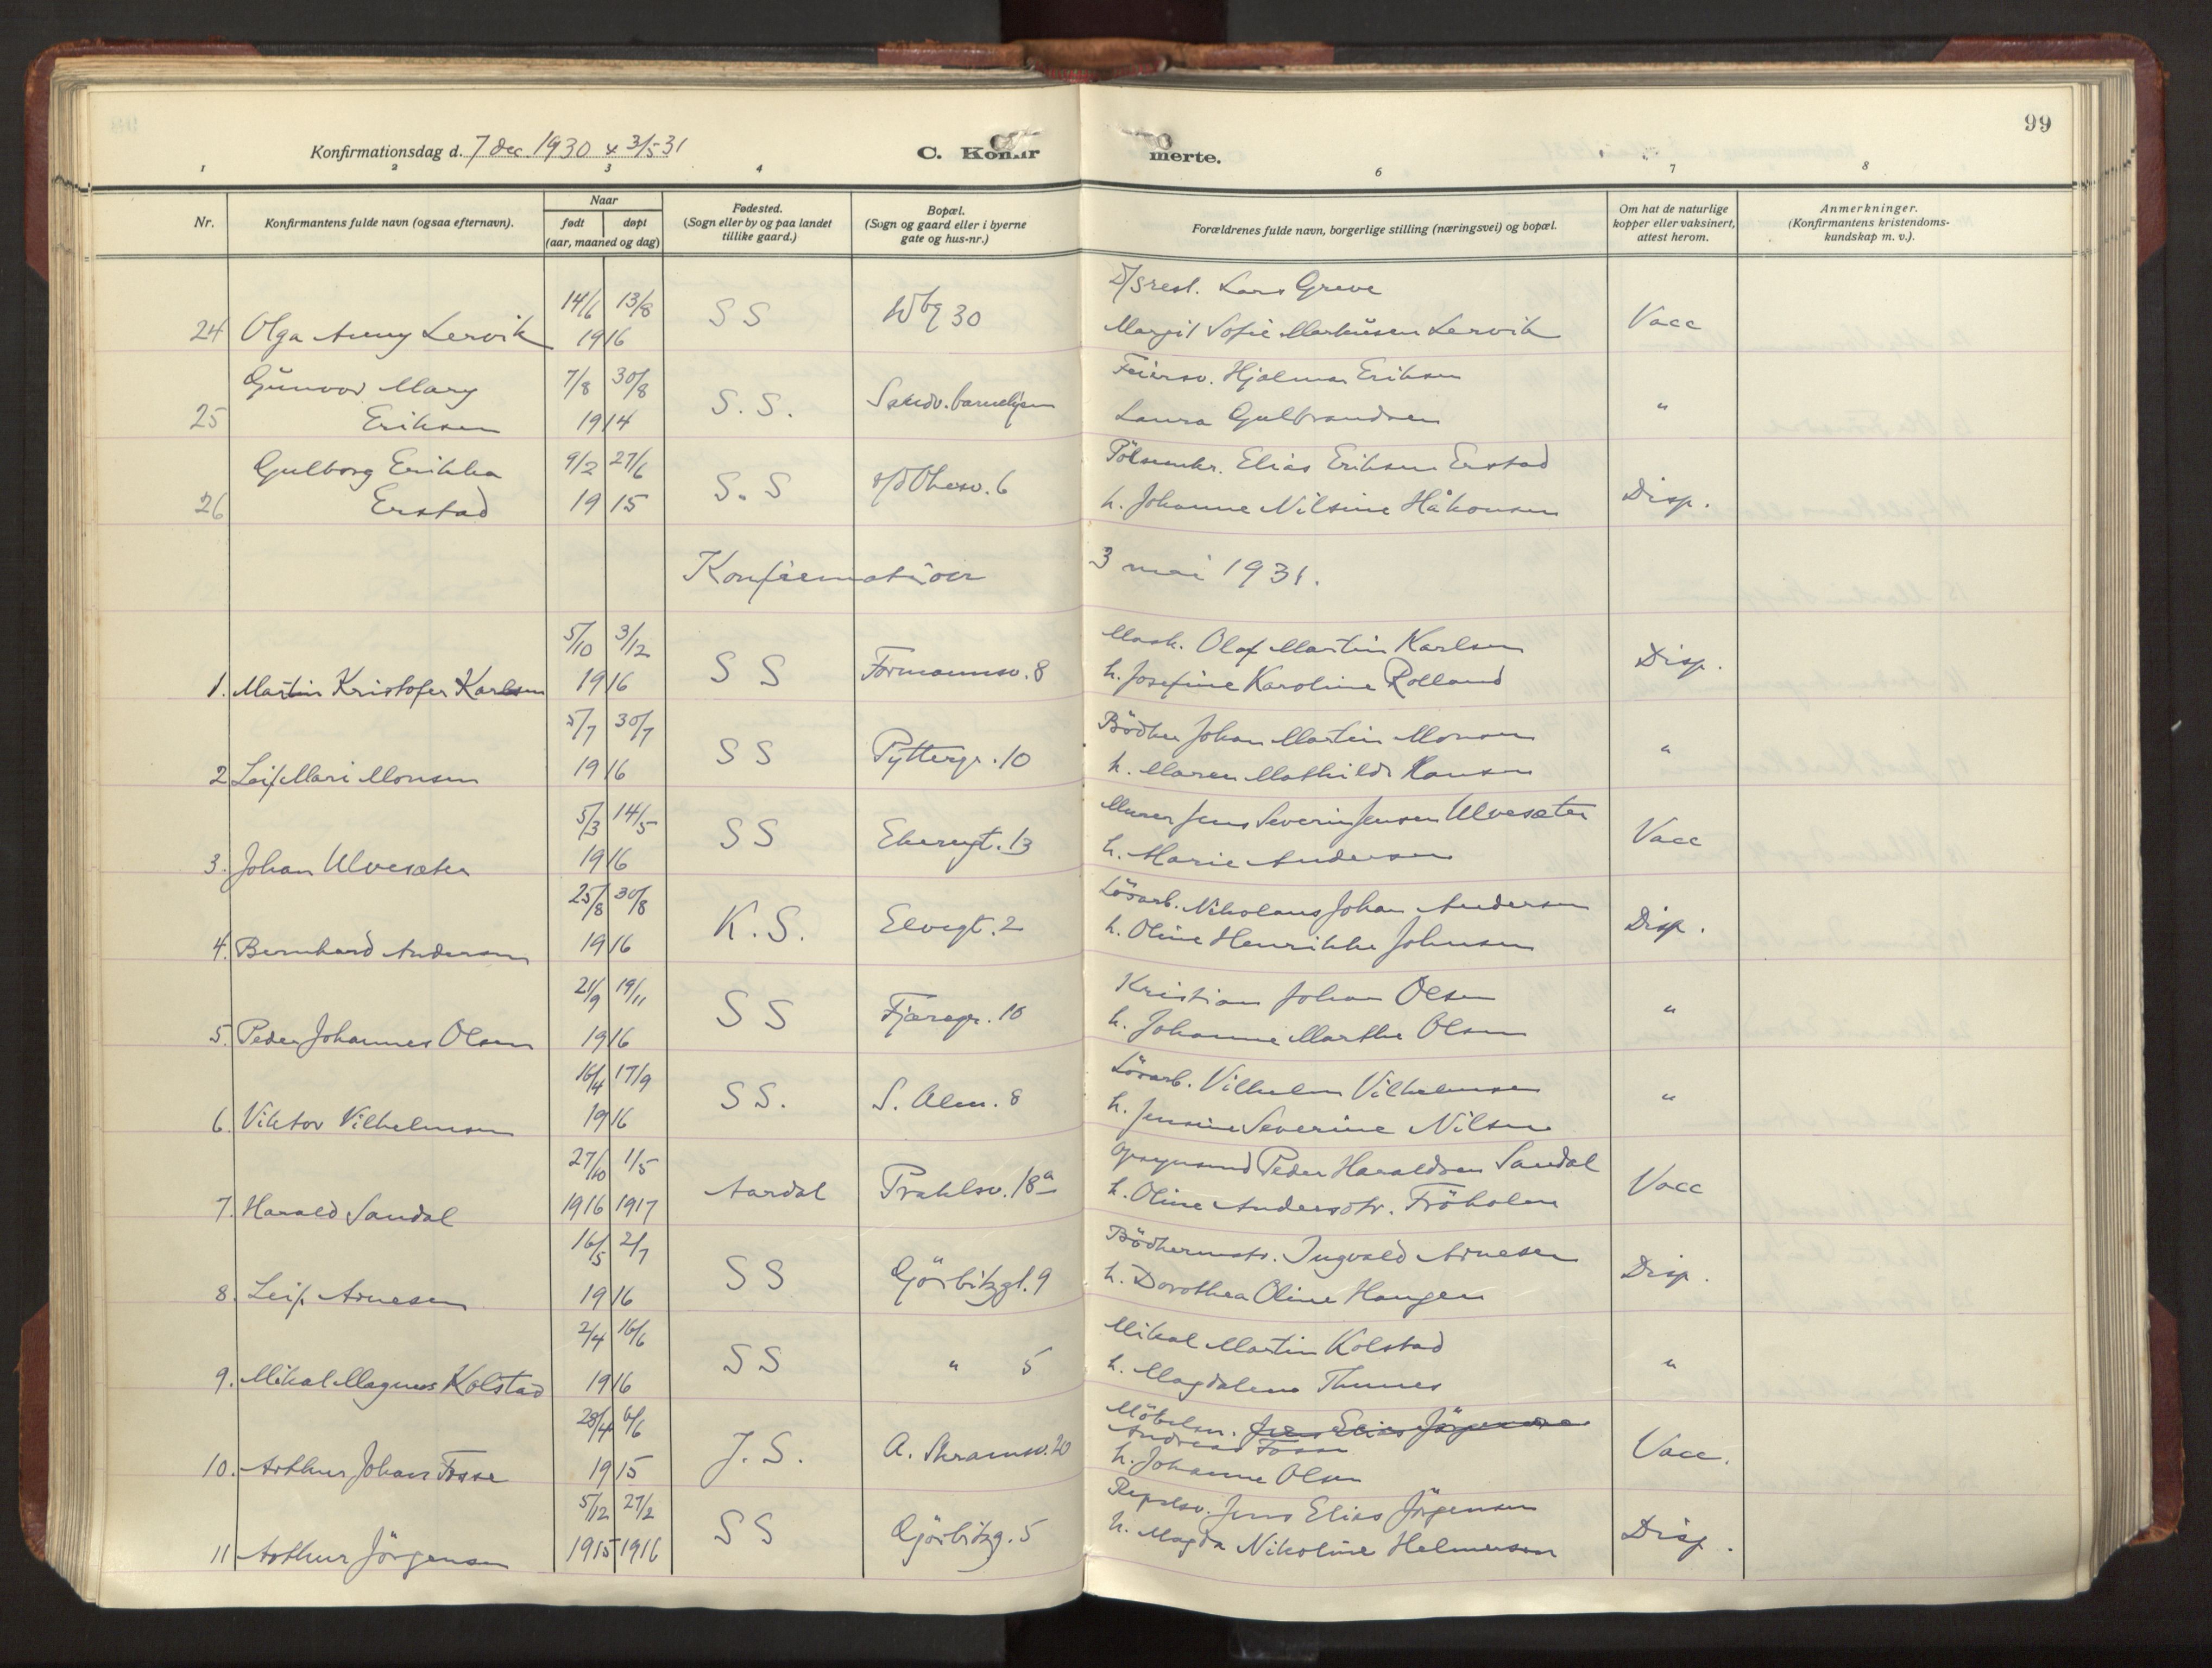 99
Konfirmationsdag d. 7 dec. 1930 & 3/5 31
C. Konfir merte.
1 2 3 4 6 7 8
Nr.
Konfirmantens fulde navn (ogsaa efternavn).
Naar
født døpt
(aar, maaned og dag)
Fødested.
(Sogn eller by og paa landet
tillike gaard.)
Bopæl.
(Sogn og gaard eller i byerne
gate og hus-nr.)
Forældrenes fulde navn, borgerlige stilling (næringsvei) og bopæl.
Om hat de naturlige
kopper eller vaksinert,
attest herom.
Anmerkninger.
(Konfirmantens kristendoms-
kundskap m. v.).
14/6 13/8 Lars Greve
24 Olga Lervik 1916 S S 30 Margit Sofie Markusen Lervik Vacc
Gunvor Mary 7/8 30/8 Feiersv. Hjalmar Eriksen
25 Eriksen 1914 S. S. Sandv. barnehjem Laura Gulbrandsen "
Gulborg Erikka 9/2 27/6 Elias Eriksen Erstad
26 Erstad 1915 S. S 6 h. Johanne Nilsine Håkonsen Disp.
Konfirmation 3 mai 1931.
5/10 3/12 Mask. Olaf Martin Karlsen
1. Martin Kristofer Karlsen 1916 S S Formannsv. 8 h. Josefine Karoline Rolland Disp.
5/7 30/7 Bödker Johan Martin Monsen
2 Leif Mari Monsen 1916 S S Pyttergr. 10 h. Maren Mathilde Hansen "
5/3 14/5 Murer Jens Severin Jensen Ulvesæter
3. Johan Ulvesæter 1916 S S Ekregt. 13 h. Marie Andersen Vacc
25/8 30/8 Lösarb. Nikolaus Johan Andersen
4. Bernhard Andersen 1916 K. S. Elvegt. 2 h. Oline Henrikke Johnsen Disp.
21/9 19/11 Kristian Johan Olsen
5. Peder Johannes Olsen 1916 S S Fjæregr. 16 h. Johanne Marthe Olsen "
16/4 17/9 Lösarb. Vilhelm Vilhelmsen
6. Viktor Vilhelmsen 1916 S S. S. Alm. 8 h. Jensine Severine Nilsen "
27/10 1/5 Opsynsmand Peder Haraldsen Sandal
7. Harald Sandal 1916 1917 Aardal Prahlsv. 18a h. Oline Andersdtr. Fröholm Vacc
16/5 2/7 Bödkermstr. Ingvald Arnesen
8. Leif Arnesen 1916 S S Görbitzgt. 9 h. Dorothea Oline Haugen Disp.
2/4 16/6 Mikal Martin Kolstad
9. Mikal Magnus Kolstad 1916 S S " 5 h. Magdalene Thunes "
28/4 6/6 Möbelsn. Jens Elias Jörgensen
Andreas Fosse
10. Arthur Johan Fosse 1915 J. S. A. Skramsv. 20 h. Johanne Olsen Vacc.
5/12 27/2 Repslsv. Jens Elias Jörgensen
11 Arthur Jörgensen 1915 1916 S S Görbitzg. 5 h. Magda Nikoline Helmersen Disp.